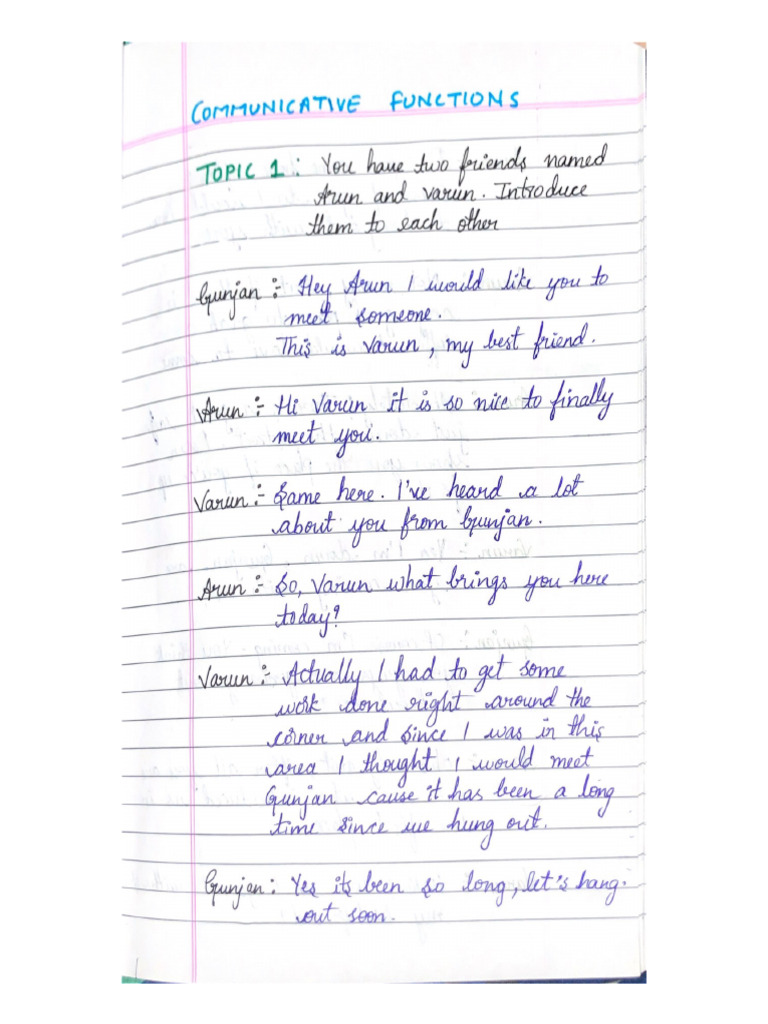 COMMUNICATIVE FUNCTIONS
TOPIC 1 : You have two friends named
Arun and Varun. Introduce
them to each other
Gunjan :- Hey Arun I would like you to
meet someone.
This is Varun, my best friend.
Arun :- Hi Varun it is so nice to finally
meet you.
Varun :- Same here. I've heard a lot
about you from Gunjan.
Arun :- So, Varun what brings you here
today?
Varun :- Actually I had to get some
work done right around the
corner and since I was in this
area I thought I would meet
Gunjan cause it has been a long
time since we hung out.
Gunjan : Yes its been so long, let's hang
out soon.